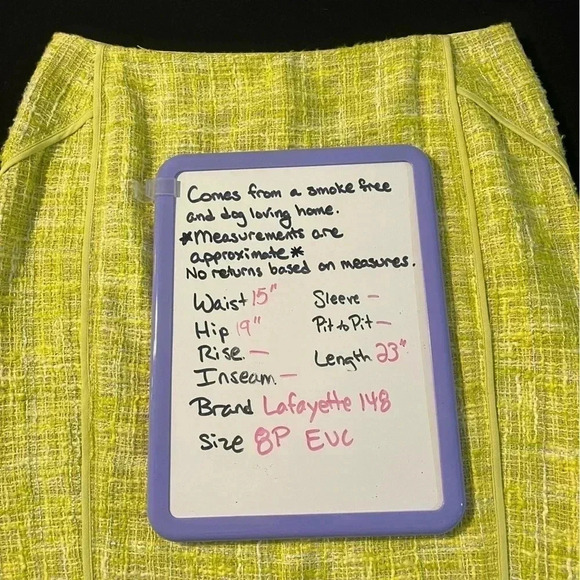 Comes from a smoke free
and dog loving home.
*Measurements are
approximate*
No returns based on measures.
Waist 15" Sleeve -
Hip 19" Pit to Pit -
Rise - Length 23"
Inseam -
Brand Lafayette 148
Size 8P EUC